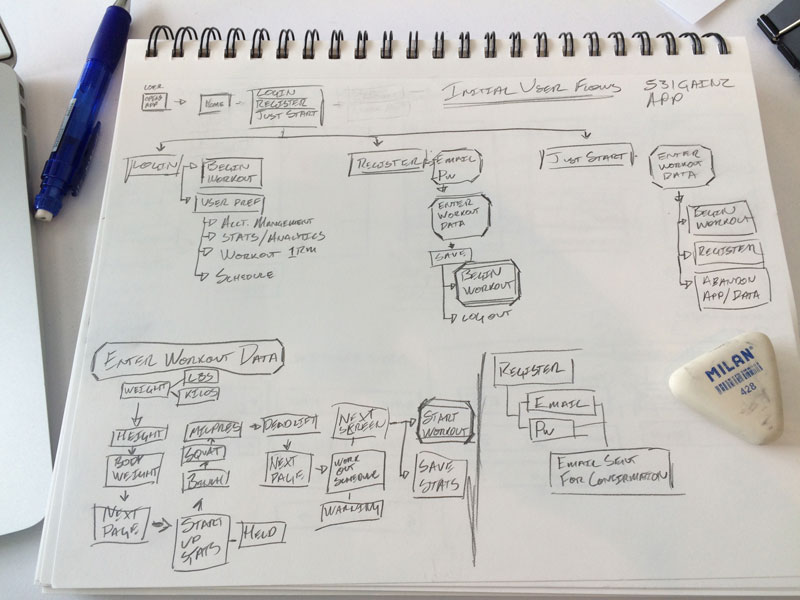 INITIAL USER FLOWS
531GAINZ
APP
USER
OPENS
APP
HOME
LOGIN
REGISTER
JUST START
LOGIN
BEGIN
WORKOUT
USER PREF
ACCT. MANAGEMENT
STATS/ANALYTICS
WORKOUT 1RM
SCHEDULE
REGISTER
EMAIL
PW
ENTER
WORKOUT
DATA
SAVE
BEGIN
WORKOUT
LOG OUT
JUST START
ENTER
WORKOUT
DATA
BEGIN
WORKOUT
REGISTER
ABANDON
APP/DATA
ENTER WORKOUT DATA
WEIGHT
LBS
KILOS
HEIGHT
BODY
WEIGHT
NEXT
PAGE
START
UP
STATS
HELD
BENCH
SQUAT
MILPRES
DEADLIFT
NEXT
PAGE
WORK
OUT
SCHEDULE
WARNING
NEXT
SCREEN
START
WORKOUT
SAVE
STATS
REGISTER
EMAIL
PW
EMAIL SENT
FOR CONFIRMATION
MILAN
428